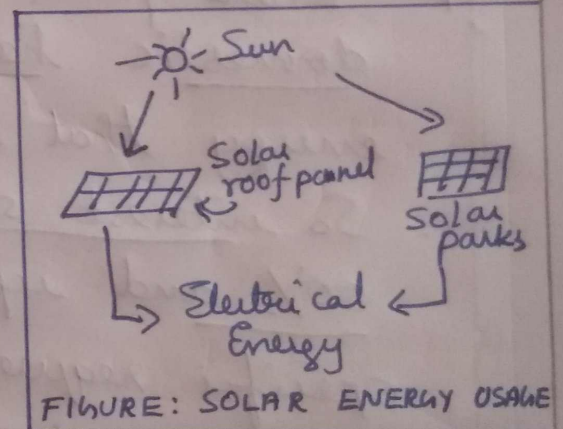 Sun
Solar
roof pannel
Solar
parks
Electrical
Energy
FIGURE: SOLAR ENERGY USAGE